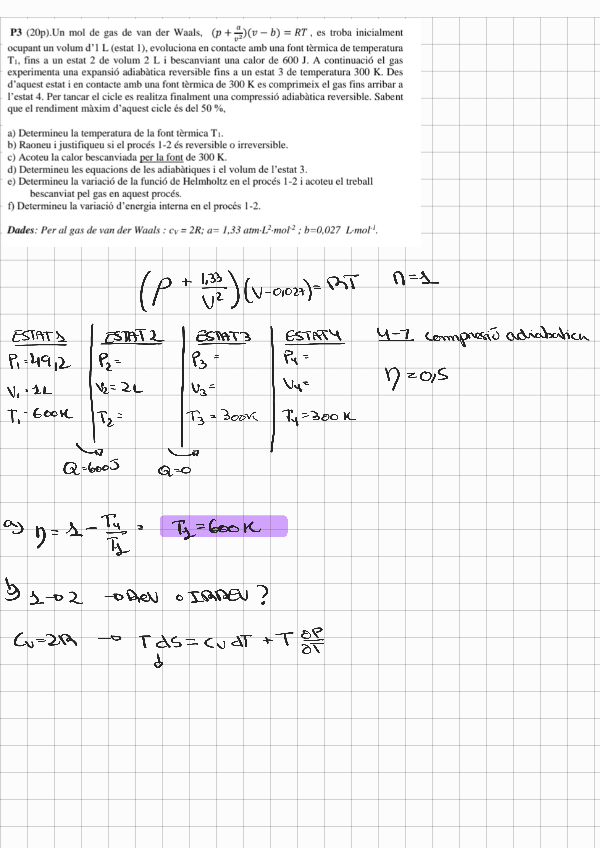 P3 (20p).Un mol de gas de van der Waals, (p + a/v²)(v − b) = RT , es troba inicialment
ocupant un volum d'1 L (estat 1), evoluciona en contacte amb una font tèrmica de temperatura
T₁, fins a un estat 2 de volum 2 L i bescanviant una calor de 600 J. A continuació el gas
experimenta una expansió adiabàtica reversible fins a un estat 3 de temperatura 300 K. Des
d'aquest estat i en contacte amb una font tèrmica de 300 K es comprimeix el gas fins arribar a
l'estat 4. Per tancar el cicle es realitza finalment una compressió adiabàtica reversible. Sabent
que el rendiment màxim d'aquest cicle és del 50 %,
a) Determineu la temperatura de la font tèrmica T₁.
b) Raoneu i justifiqueu si el procés 1-2 és reversible o irreversible.
c) Acoteu la calor bescanviada per la font de 300 K.
d) Determineu les equacions de les adiabàtiques i el volum de l'estat 3.
e) Determineu la variació de la funció de Helmholtz en el procés 1-2 i acoteu el treball
bescanviat pel gas en aquest procés.
f) Determineu la variació d'energia interna en el procés 1-2.
Dades: Per al gas de van der Waals : cᵥ = 2R; a= 1,33 atm·L²·mol⁻² ; b=0,027 L·mol⁻¹.
(P + 1,33/V²)(V-0,027)=RT n=1
ESTAT 1 ESTAT 2 ESTAT 3 ESTAT 4 4-1 compresió adiabatica
P₁=49,2 P₂= P₃= P₄=
V₁=1L V₂=2L V₃= V₄= η=0,5
T₁=600K T₂= T₃=300K T₄=300K
Q=600J Q=0
a) η=1-T₄/T₁= T₁=600K
b) 1→2 →REV o IRREV?
Cv=2R → TdS=CvdT+T ∂P/∂T